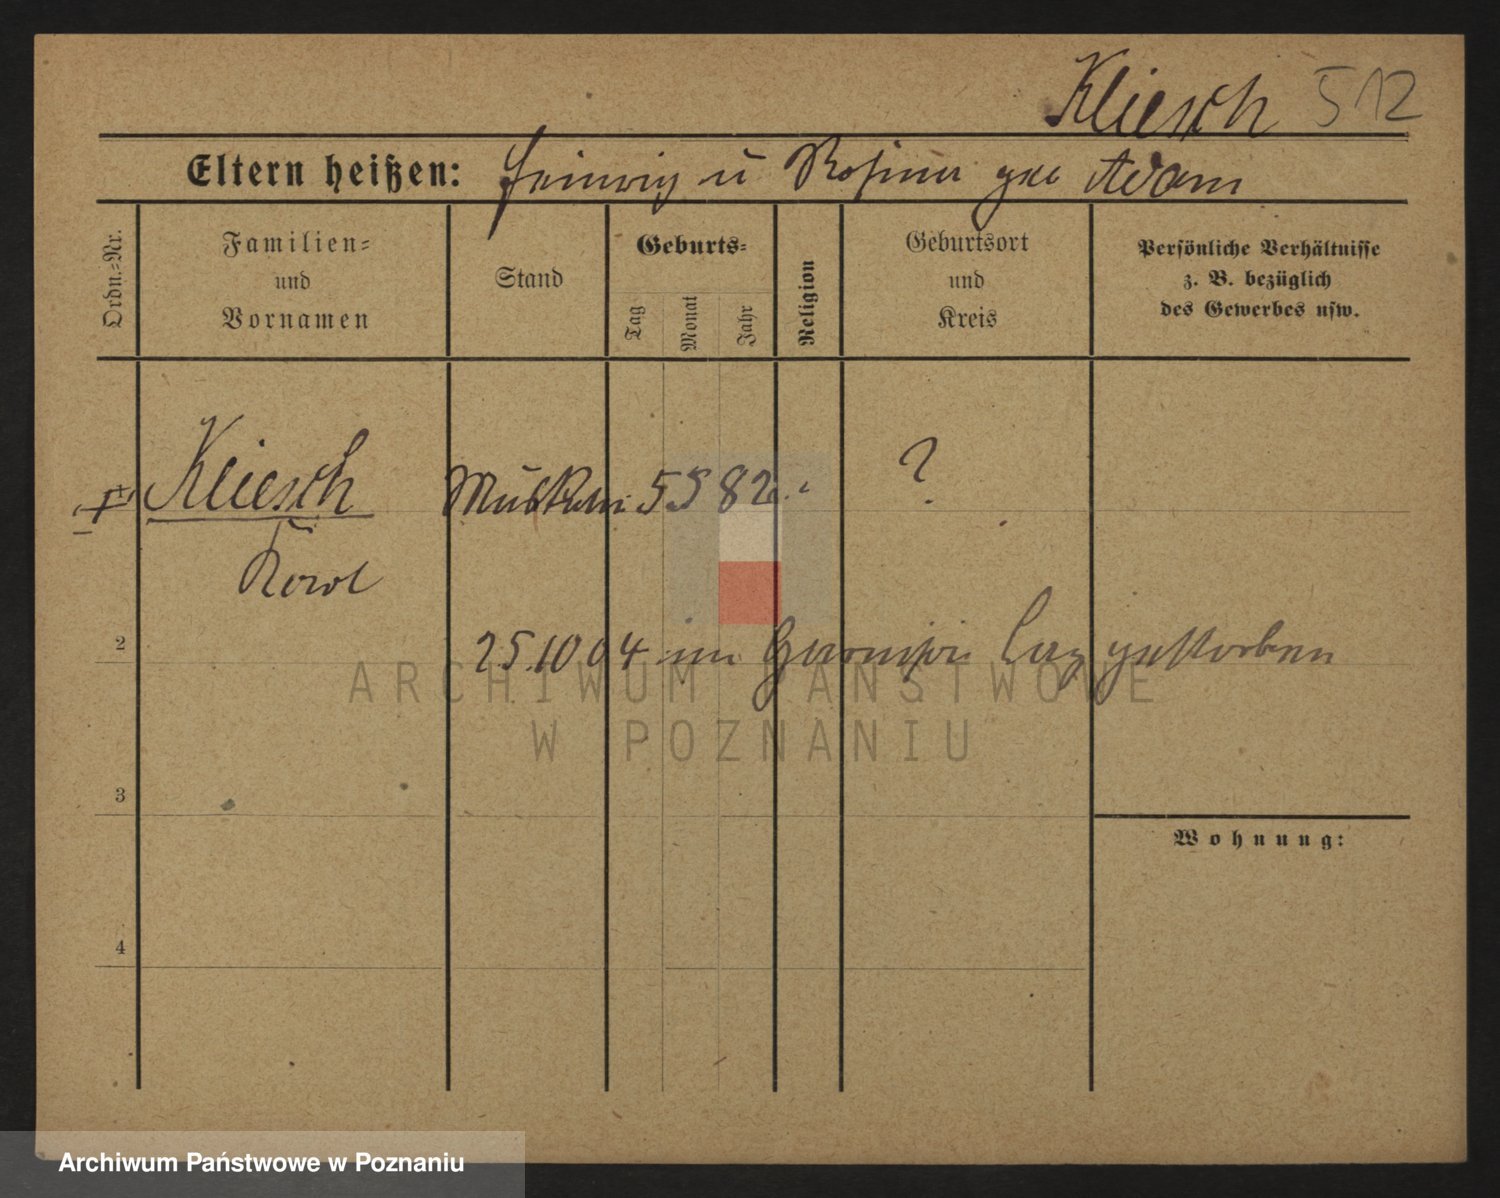 Kliesch 512
Eltern heißen: Heinrich u Rosina geb Adam
Ordn.-Nr.
Familien-
und
Vornamen
Stand
Geburts-
Tag
Monat
Jahr
Religion
Geburtsort
und
Kreis
Persönliche Verhältnisse
z. B. bezüglich
des Gewerbes usw.
Kliesch
Musketier 5 5 82 ?
Karl
2
25.10 04 im Garnison Laz gestorben
ARCHIWUM PAŃSTWOWE
W POZNANIU
3
Wohnung:
4
Archiwum Państwowe w Poznaniu